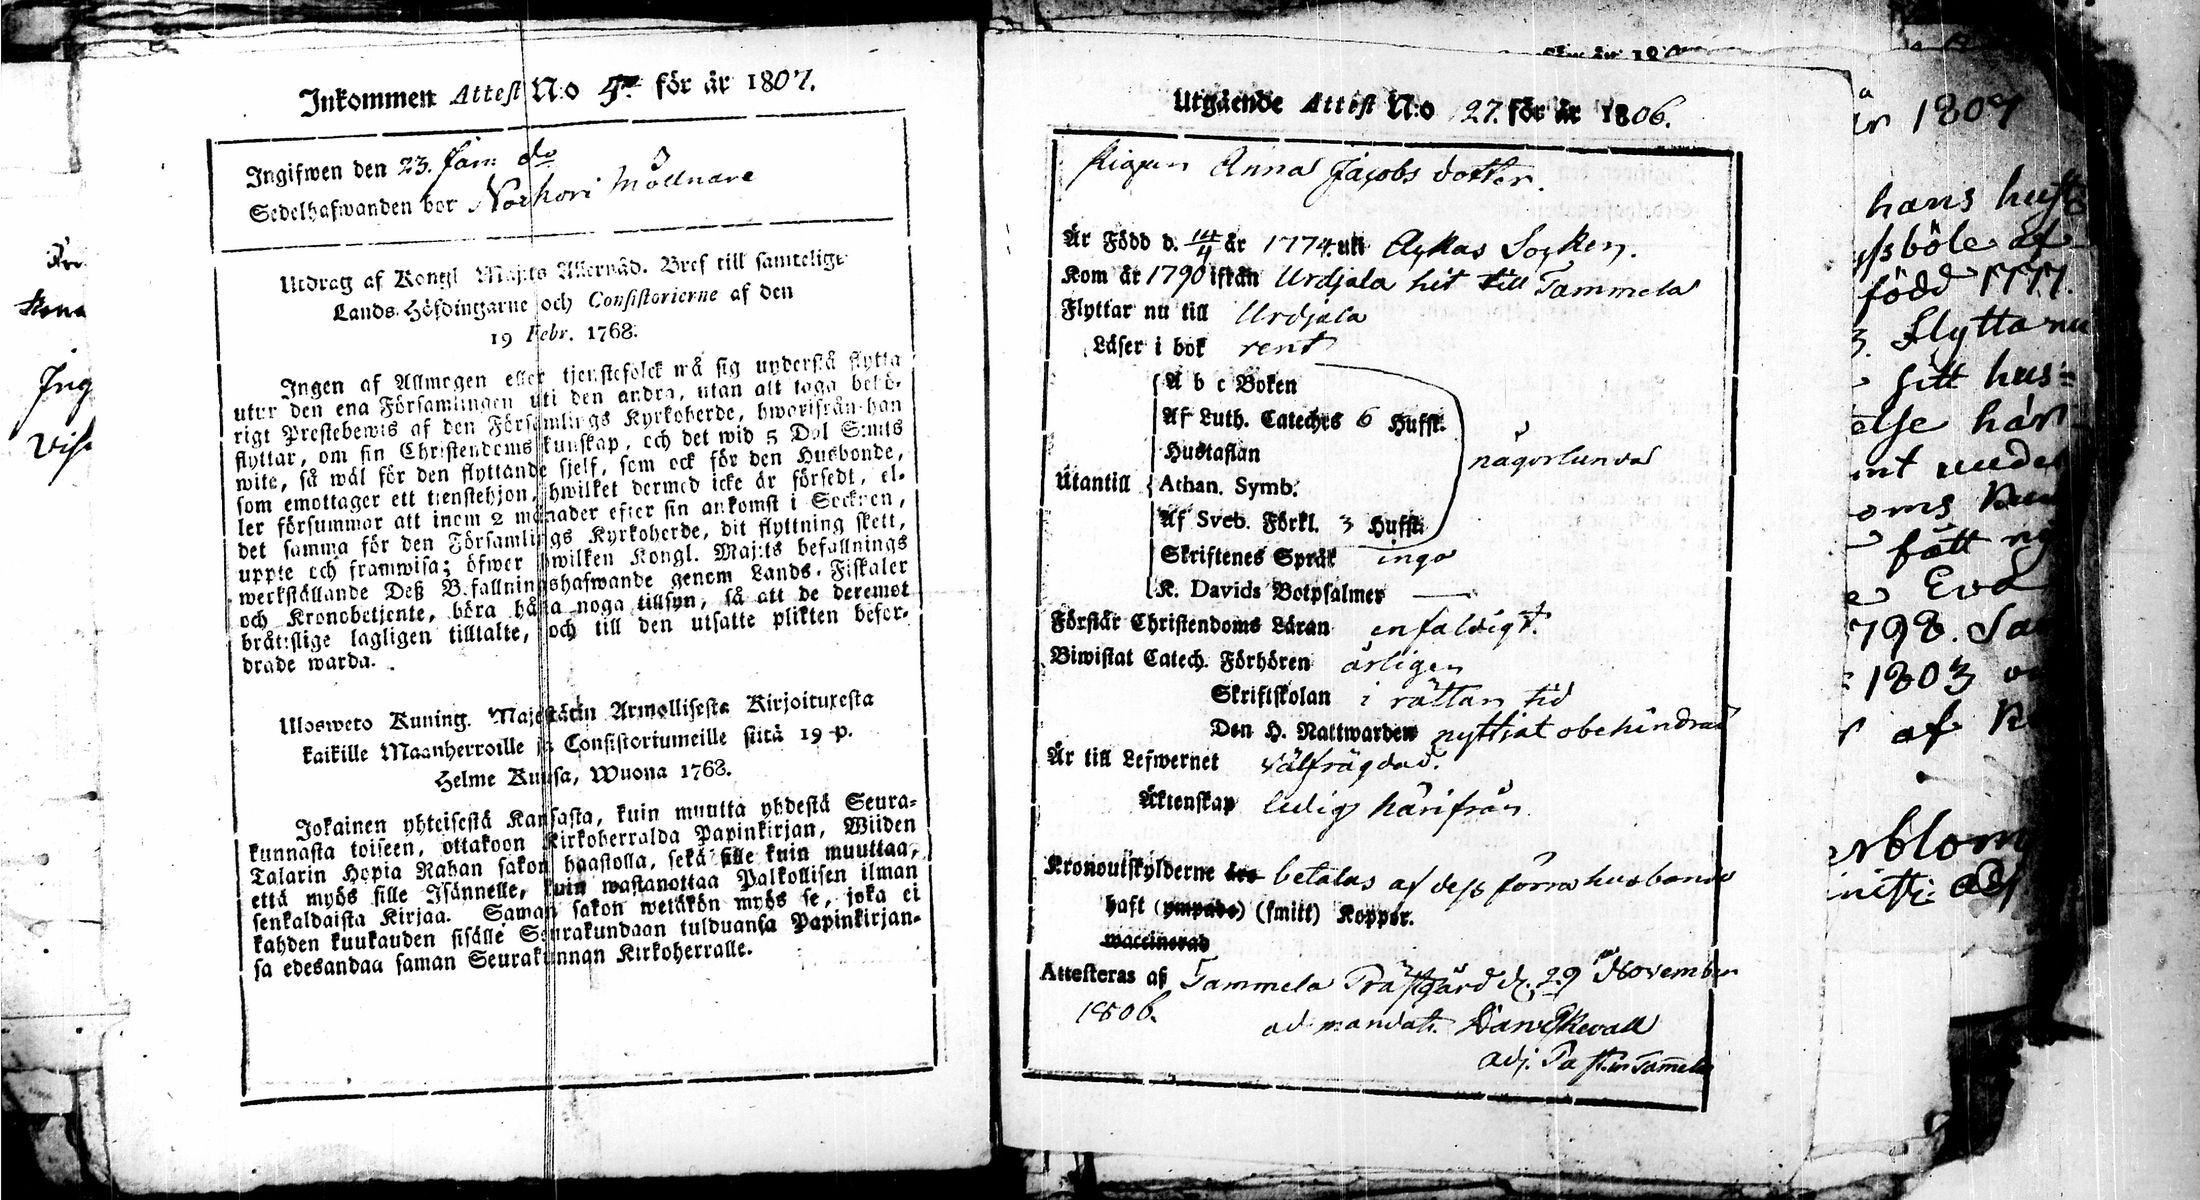 Inkommen Attest N:o 4. för år 1807.
Ingifwen den 23. Jan: do
Sedelhafwanden bor Norkori Möllnare
Utdrag af Kongl Maj:ts Allernåd. Bref till samtelige
Lands-Höfdingarne och Consistorierne af den
19 Febr. 1768.
Ingen af Allmogen eller tjenstefolck må sig understå flytta
utur den ena Församlingen uti den andra, utan att taga behö-
rigt Prestebewis af den Församlings Kyrkoherde, hwarifrån han
flyttar, om sin Christendoms kunskap, och det wid 5 Dal S:mts
wite, så wäl för den flyttande sjelf, som ock för den Husbonde,
som emottager ett tienstehjon, hwilket dermed icke är försedt, el-
ler försummar att inom 2 månader efter sin ankomst i Socknen,
det samma för den Församlings Kyrkoherde, dit flyttning skett,
uppte och framwisa; öfwer hwilken Kongl. Maj:ts befallnings
werkställande Deß Befallningshafwande genom Lands-Fiskaler
och Kronobetjente, böra hafwa noga tillsyn, så att de deremot
bråtslige lagligen tilltalte, och till den utsatte plikten befor-
drade warda.
Ulosweto Kuning. Majestätin Armollisesta Kirjoituxesta
kaikille Maanherroille ja Consistoriumeille siitä 19 p.
Helme Kuusa, Wuona 1768.
Jokainen yhteisestä Kansasta, kuin muutta yhdestä Seura-
kunnasta toiseen, ottakoon Kirkoherralda Papinkirjan, Wiiden
Talarin Hopia Rahan sakon haastolla, sekä sille kuin muuttaa,
että myös sille Isännelle, kuin wastanottaa Palkollisen ilman
senkaldaista Kirjaa. Saman sakon wetäkön myös se, joka ei
kahden kuukauden sisälle Seurakundaan tulduansa Papinkirjan-
sa edesandaa saman Seurakunnan Kirkoherralle.
Utgående Attest N:o 27. för år 1806.
Pigan Anna Jacobs dotter.
Är Född d. 14/4 år 1774. uti Ackas Socken.
Kom år 1790 ifrån Urdjala hit till Tammela
Flyttar nu till Urdjala
Läser i bok rent
A b c Boken
Af Luth. Cateches 6 Hufst.
Hustaflan
någorlunda
Utantill Athan. Symb.
Af Sveb. Förkl. 3 Hufst.
Skriftenes Språk inga
K. Davids Botpsalmer —
Förstår Christendoms Läran enfaldigt.
Biwistat Catech. Förhören årligen
Skriftskolan i rättan tid
Den H. Nattwarden nyttjat obehindrad
Är till Lefwernet välfrägdad.
Äktenskap ledig härifrån
Kronoutskylderne äro betalas af dess förra husbonde
haft (ympade) (smitt) Koppor.
waccinerad
Attesteras af Tammela Prästgård d. 29 November
1806.
ad mandat.
adj. Past. in Tammela
är 1807
hans hust
född 1777.
3. Flytta nu
sitt hus=
else här
fått
Eva
1803
af